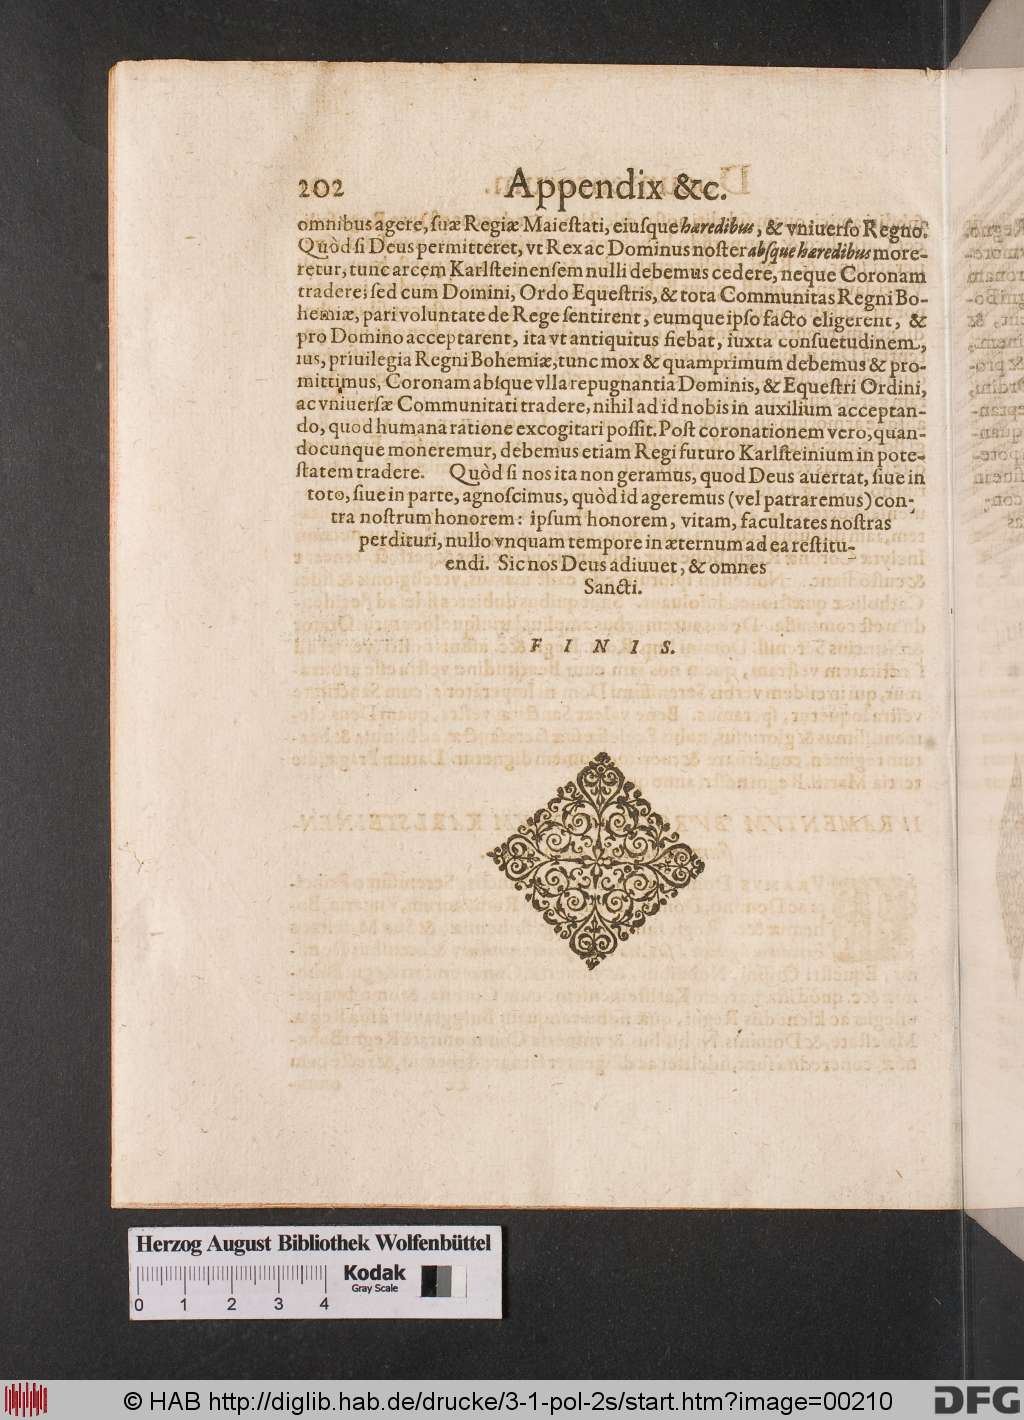 202 Appendix &c.
omnibus agere, ſuæ Regiæ Maieſtati, eiuſque hæredibus, & vniuerſo Regno.
Quòd ſi Deus permitteret, vt Rex ac Dominus noſter abſque hæredibus more-
retur, tunc arcem Karlſteinenſem nulli debemus cedere, neque Coronam
tradere; ſed cum Domini, Ordo Equeſtris, & tota Communitas Regni Bo-
hemiæ, pari voluntate de Rege ſentirent, eumque ipſo facto eligerent, &
pro Domino acceptarent, ita vt antiquitus fiebat, iuxta conſuetudinem,
ius, priuilegia Regni Bohemiæ, tunc mox & quamprimum debemus & pro-
mittimus, Coronam abſque vlla repugnantia Dominis, & Equeſtri Ordini,
ac vniuerſæ Communitati tradere, nihil ad id nobis in auxilium acceptan-
do, quod humana ratione excogitari poſſit. Poſt coronationem vero, quan-
docunque moneremur, debemus etiam Regi futuro Karlſteinium in pote-
ſtatem tradere. Quòd ſi nos ita non geramus, quod Deus auertat, ſiue in
toto, ſiue in parte, agnoſcimus, quòd id ageremus (vel patraremus) con-
tra noſtrum honorem: ipſum honorem, vitam, facultates noſtras
perdituri, nullo vnquam tempore in æternum ad ea reſtitu-
endi. Sic nos Deus adiuuet, & omnes
Sancti.
F I N I S.
Herzog August Bibliothek Wolfenbüttel
Kodak
Gray Scale
0 1 2 3 4
© HAB http://diglib.hab.de/drucke/3-1-pol-2s/start.htm?image=00210
DFG